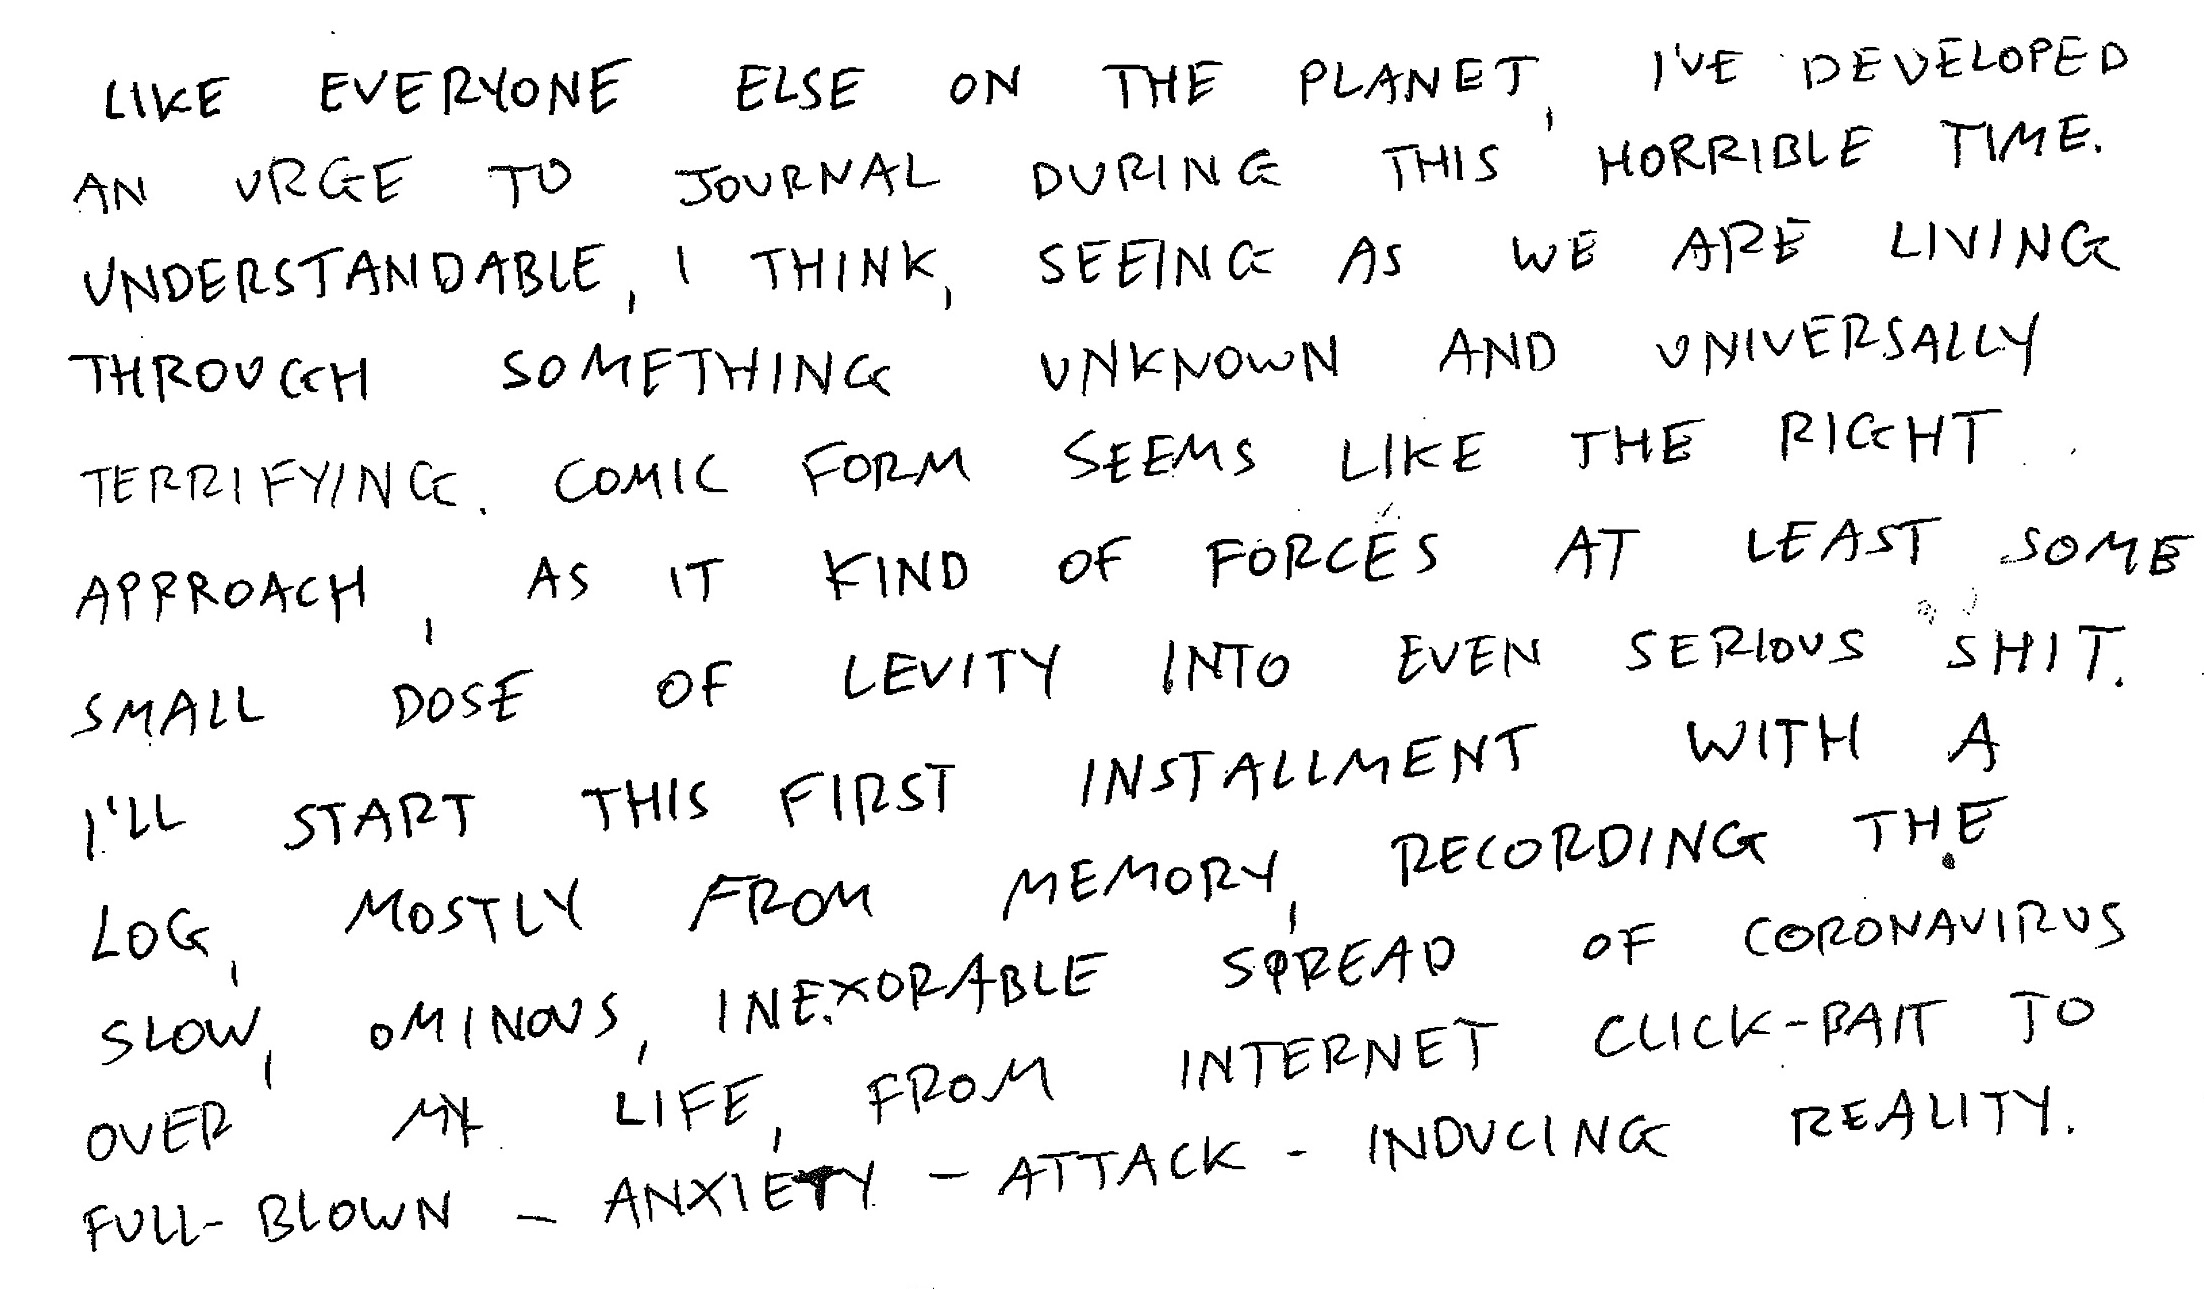 LIKE EVERYONE ELSE ON THE PLANET, I'VE DEVELOPED
AN URGE TO JOURNAL DURING THIS HORRIBLE TIME.
UNDERSTANDABLE, I THINK, SEEING AS WE ARE LIVING
THROUGH SOMETHING UNKNOWN AND UNIVERSALLY
TERRIFYING. COMIC FORM SEEMS LIKE THE RIGHT
APPROACH, AS IT KIND OF FORCES AT LEAST SOME
SMALL DOSE OF LEVITY INTO EVEN SERIOUS SHIT.
I'LL START THIS FIRST INSTALLMENT WITH A
LOG, MOSTLY FROM MEMORY, RECORDING THE
SLOW, OMINOUS, INEXORABLE SPREAD OF CORONAVIRUS
OVER MY LIFE, FROM INTERNET CLICK-BAIT TO
FULL-BLOWN - ANXIETY - ATTACK - INDUCING REALITY.